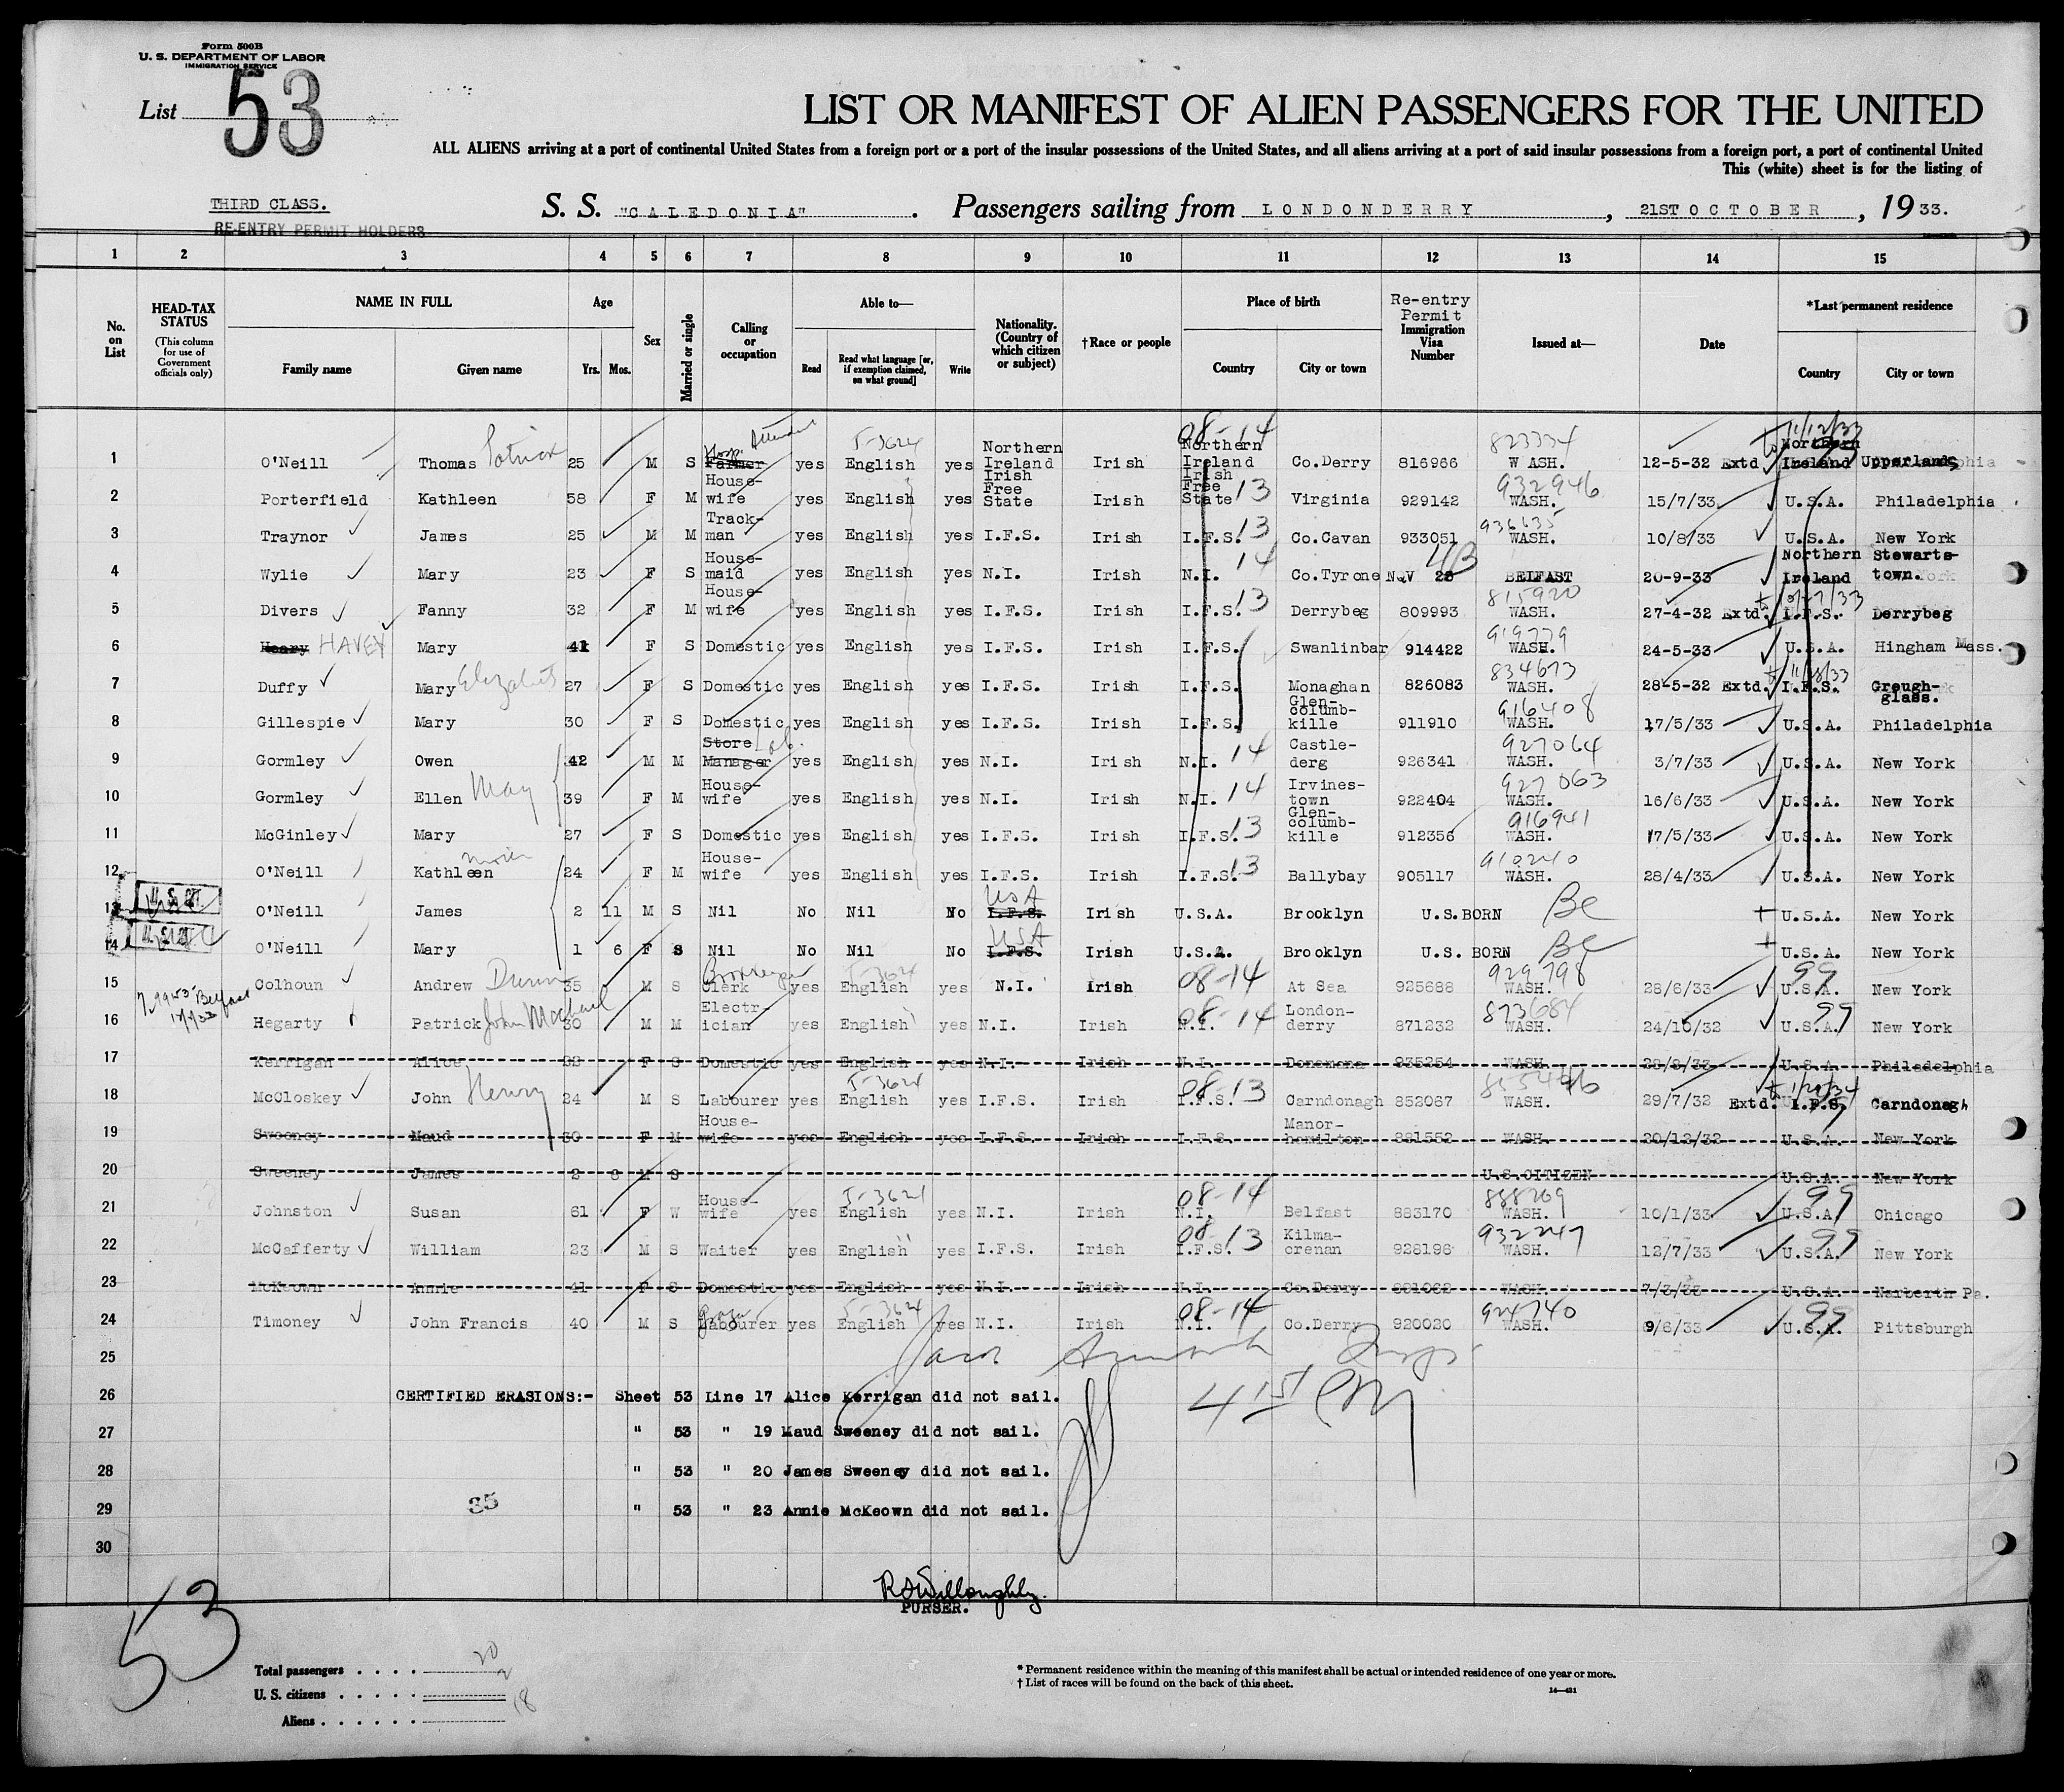 Form 500B
U. S. DEPARTMENT OF LABOR
IMMIGRATION SERVICE
List 53
LIST OR MANIFEST OF ALIEN PASSENGERS FOR THE UNITED
ALL ALIENS arriving at a port of continental United States from a foreign port or a port of the insular possessions of the United States, and all aliens arriving at a port of said insular possessions from a foreign port, a port of continental United
This (white) sheet is for the listing of
THIRD CLASS.
RE-ENTRY PERMIT HOLDERS
S. S. "CALEDONIA". Passengers sailing from LONDONDERRY, 21ST OCTOBER, 1933.
1 2 3 4 5 6 7 8 9 10 11 12 13 14 15
No. on List
HEAD-TAX STATUS (This column for use of Government officials only)
NAME IN FULL Family name Given name
Age Yrs. Mos.
Sex
Married or single
Calling or occupation
Able to— Read Read what language [or, if exemption claimed, on what ground] Write
Nationality. (Country of which citizen or subject)
†Race or people
Place of birth Country City or town
Re-entry Permit Immigration Visa Number
Issued at—
Date
*Last permanent residence Country City or town
1 O'Neill Thomas Patrick 25 M S Farmer Hosp. Attendant yes English 5-3624 yes Northern Ireland Irish 08-14 Northern Ireland Co.Derry 816966 823334 WASH. 12-5-32 Extd. 11/12/33 Northern Ireland Upperlands
2 Porterfield Kathleen 58 F M House-wife yes English yes Irish Free State Irish Irish Free State 13 Virginia 929142 932946 WASH. 15/7/33 U.S.A. Philadelphia
3 Traynor James 25 M M Track-man yes English yes I.F.S. Irish I.F.S. 13 Co.Cavan 933051 936635 WASH. 10/8/33 U.S.A. New York
4 Wylie Mary 23 F S House-maid yes English yes N.I. Irish N.I. 14 Co.Tyrone NQV 28 4/3 BELFAST 20-9-33 Northern Ireland Stewarts-town.
5 Divers Fanny 32 F M House-wife yes English yes I.F.S. Irish I.F.S. 13 Derrybeg 809993 815920 WASH. 27-4-32 Extd. I.F.S. Derrybeg
6 Heary HAVEY Mary 41 F S Domestic yes English yes I.F.S. Irish I.F.S. Swanlinbar 914422 919779 WASH. 24-5-33 U.S.A. Hingham Mass.
7 Duffy Mary Elizabeth 27 F S Domestic yes English yes I.F.S. Irish I.F.S. Monaghan 826083 834673 WASH. 28-5-32 Extd. 11/28/33 I.F.S. Greugh-glass.
8 Gillespie Mary 30 F S Domestic yes English yes I.F.S. Irish I.F.S. Glen-columb-kille 911910 916408 WASH. 17/5/33 U.S.A. Philadelphia
9 Gormley Owen 42 M M Store Manager yes English yes N.I. Irish N.I. 14 Castle-derg 926341 927064 WASH. 3/7/33 U.S.A. New York
10 Gormley Ellen May 39 F M House-wife yes English yes N.I. Irish N.I. 14 Irvines-town 922404 927063 WASH. 16/6/33 U.S.A. New York
11 McGinley Mary 27 F S Domestic yes English yes I.F.S. Irish I.F.S. 13 Glen-columb-kille 912356 916941 WASH. 17/5/33 U.S.A. New York
12 O'Neill Kathleen 24 F M House-wife yes English yes I.F.S. Irish I.F.S. 13 Ballybay 905117 910240 WASH. 28/4/33 U.S.A. New York
13 O'Neill James 2 11 M S Nil No Nil No I.F.S. USA Irish U.S.A. Brooklyn U.S.BORN BC U.S.A. New York
14 O'Neill Mary 1 6 F S Nil No Nil No I.F.S. USA Irish U.S.A. Brooklyn U.S. BORN BC U.S.A. New York
15 Colhoun Andrew 35 M S Clerk Bookkeeper yes English 5-3624 yes N.I. Irish 08-14 At Sea 925688 929798 WASH. 28/6/33 U.S.A. 99 New York
16 Hegarty Patrick John Michael 30 M M Electr-ician yes English yes N.I. Irish 08-14 N.I. London-derry 871232 873684 WASH. 24/10/32 U.S.A. 99 New York
17 Kerrigan Alice 22 F S Domestic yes English yes N.I. Irish N.I. Donemana 935254 WASH. 28/8/33 U.S.A. Philadelphia
18 McCloskey John Henry 24 M S Labourer yes English 5-3624 yes I.F.S. Irish 08-13 I.F.S. Carndonagh 852087 WASH. 29/7/32 Extd. 1/29/34 I.F.S. Carndonagh
19 Sweeney Maud 30 F M House-wife yes English yes I.F.S. Irish I.F.S. Manor-hamilton 881552 WASH. 20/12/32 U.S.A. New York
20 Sweeney James 2 8 M S U.S.CITIZEN U.S.A. New York
21 Johnston Susan 61 F W House-wife yes English 5-3621 yes N.I. Irish 08-14 N.I. Belfast 883170 888269 WASH. 10/1/33 U.S.A. 99 Chicago
22 McCafferty William 23 M S Waiter yes English yes I.F.S. Irish 08-13 I.F.S. Kilma-crenan 928196 932247 WASH. 12/7/33 U.S.A. 99 New York
23 McKeown Annie 41 F S Domestic yes English yes N.I. Irish N.I. Co.Derry 891062 WASH. 7/3/33 U.S.A. Narberth Pa.
24 Timoney John Francis 40 M S Labourer yes English 5-3624 yes N.I. Irish 08-14 N.I. Co.Derry 920020 924740 WASH. 9/6/33 U.S.A. 99 Pittsburgh
25
26 CERTIFIED ERASIONS:- Sheet 53 Line 17 Alice Kerrigan did not sail.
27 " 53 " 19 Maud Sweeney did not sail.
28 " 53 " 20 James Sweeney did not sail.
29 35 " 53 " 23 Annie McKeown did not sail.
30
Willoughby.
PURSER.
53
Total passengers . . . . 20
U. S. citizens . . . . . 2
Aliens . . . . . . 18
* Permanent residence within the meaning of this manifest shall be actual or intended residence of one year or more.
† List of races will be found on the back of this sheet.
14—431